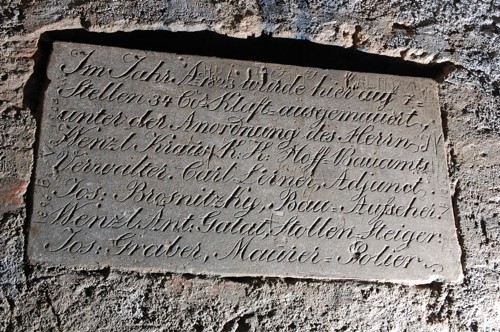 Im Jahr wurde hier auf 7=
Stellen 34 60/ Kluft=ausgemauert,
unter der Anordnung des Herrn
Wenzl Kraus, K. K. Hoff=Bauamts
Verwalter. Carl Adjunct.
Jos. Brosnitzky, Bau=Aufseher.
Wenzl. Ant. Galat, Stollen=Steiger.
Jos. Graber, Maurer=Polier.